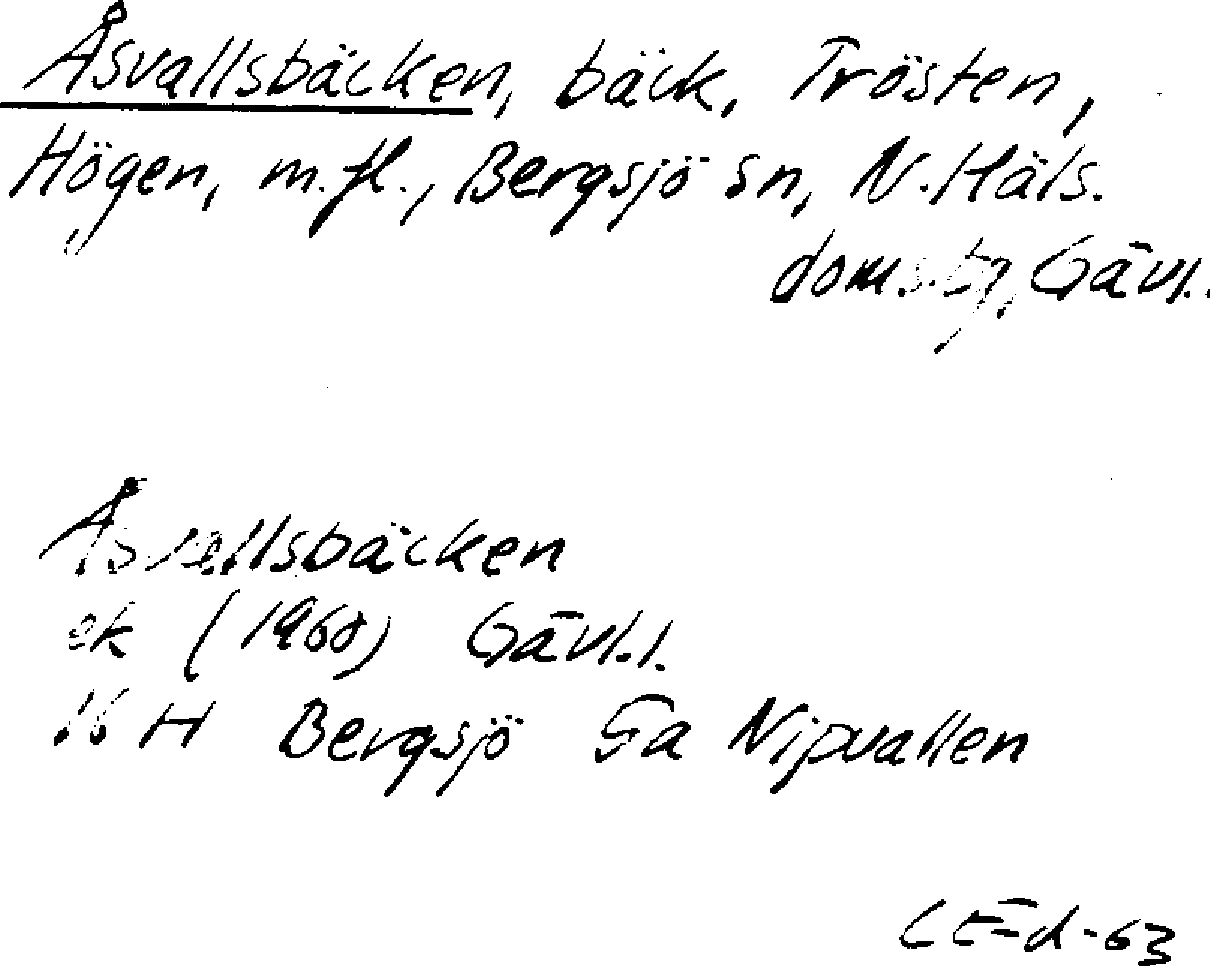 Åsvallsbäcken, bäck, Trösten,
Högen, m.fl., Bergsjö sn, N. Häls.
doms.bg, Gävl.
Åsvallsbäcken
ek (1960) Gävl.l.
16 H Bergsjö 5a Nipvallen